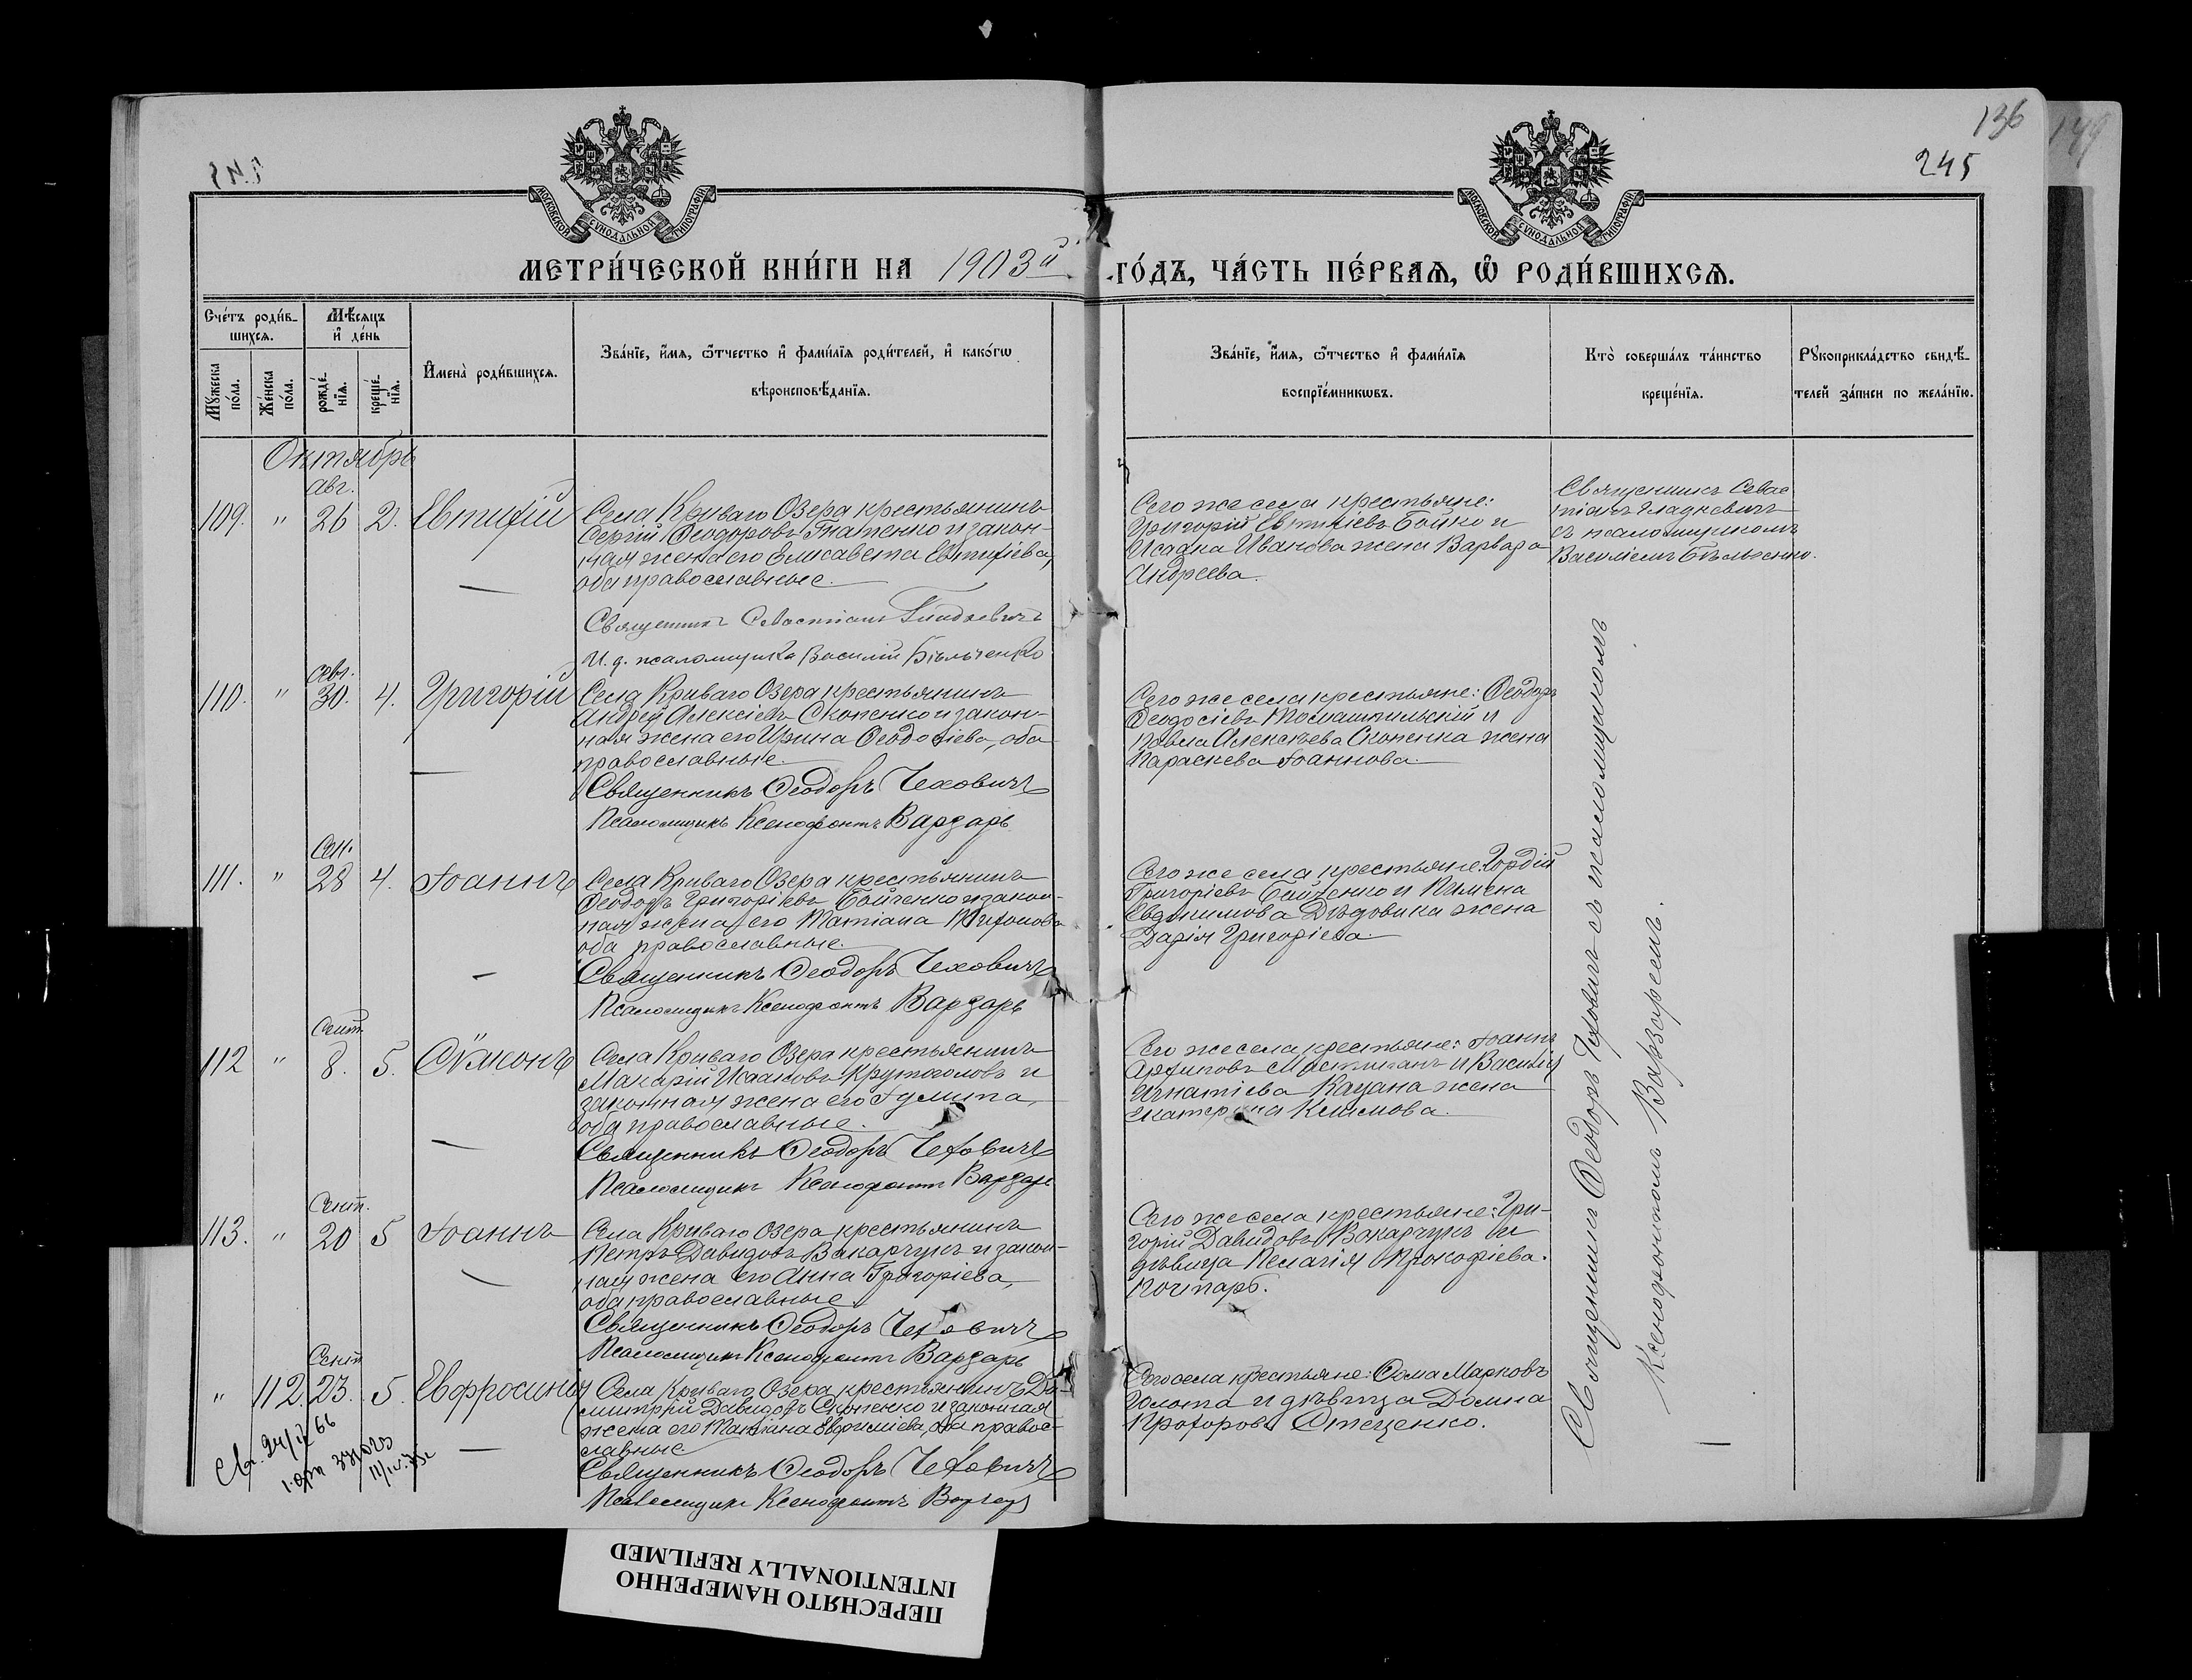 136
149
245
МОСКОВСКОЙ СУНОДАЛЬНОЙ ТИПОГРАФІИ
МОСКОВСКОЙ СУНОДАЛЬНОЙ ТИПОГРАФІИ
МЕТРИ́ЧЕСКОЙ КНИ́ГИ НА 1903й ГО́ДЪ, ЧА́СТЬ ПЕ́РВАЯ, Ѿ РОДИ́ВШИХСЯ.
Сче́тъ роди́вшихся.
Мѣ́сяцъ и҆ де́нь
Мꙋжеска по́ла.
Же́нска по́ла.
рожде́нїя.
креще́нїя.
И҆мена̀ роди́вшихся.
Зва́нїе, и҆́мя, ѻ҆́тчество и҆ фами́лїя роди́телей, и҆ како́гѡ
вѣроисповѣ́данїя.
Зва́нїе, и҆́мя, ѻ҆́тчество и҆ фами́лїя
воспрїе́мникѡвъ.
Кто̀ соверша́лъ та́инство
креще́нїя.
Рꙋкоприкла́дство свидѣ́телей за́писи по жела́нїю.
Октябрь
Авг.
109. " 26 2. Евтихій
Села Криваго Озера крестьянинъ
Сергій Ѳеодоровъ Гнатенко и закон-
ная жена его Елисавета Евтихіева,
оба православные.
Священникъ Севастіанъ Гладкевичъ
И. д. псаломщика Василій Бѣльченко
Сего же села крестьяне:
Григорій Евтихіевъ Бойко и
Исаака Иванова жена Варвара
Андреева.
Священникъ Севас
тіанъ Гладкевичъ
съ псаломщикомъ
Василіемъ Бѣльченко.
110. " 30. 4. Григорій
Села Криваго Озера крестьянинъ
Андрей Алексіевъ Скопенко и закон-
ная жена его Ирина Ѳеодосіева, оба
православные.
Священникъ Ѳеодоръ Чеховичъ
Псаломщикъ Ксенофонтъ Варзарь
Сего же села крестьяне: Ѳеодоръ
Ѳеодосіевъ и
Павла Алексѣева Скопенка жена
Параскева Іоаннова.
Сен.
111. " 28 4. Іоаннъ
Села Криваго Озера крестьянинъ
Ѳеодоръ Григоріевъ Бойченко и закон-
ная жена его Татіана
оба православные.
Священникъ Ѳеодоръ Чеховичъ
Псаломщикъ Ксенофонтъ Варзарь
Сего же села крестьяне: Гордій
Григоріевъ Бойченко и Пимена
Евдокимова Дѣдовика жена
Дарія Григоріева.
Сент.
112 " 8. 5. Сѵмеонъ
Села Криваго Озера крестьянинъ
Макарій Исааковъ Круто­головъ и
законная жена его Іулита,
оба православные.
Священникъ Ѳеодоръ Чеховичъ
Псаломщикъ Ксенофонтъ Варзарь
Сего же села крестьяне: Іоаннъ
Архиповъ и Василія
Игнатіева Кацана жена
Екатерина Климова.
Сент.
113. " 20 5 Іоаннъ
Села Криваго Озера крестьянинъ
Петръ Давидовъ Вакарчукъ и закон-
ная жена его Анна Григоріева,
оба православные.
Священникъ Ѳеодоръ Чеховичъ
Псаломщикъ Ксенофонтъ Варзарь
Сего же села крестьяне: Гри-
горій Давидовъ Вакарчукъ и
дѣвица Пелагія Прокофіева
Сент
" 112. 23. 5. Евфросинія
Села Криваго Озера крестьянинъ Ди-
митрій Давидовъ Скопенко и законная
жена его Татіана Евфиміева, оба право-
славные
Священникъ Ѳеодоръ Чеховичъ
Псаломщикъ Ксенофонтъ Варзарь
Сего села крестьяне: Ѳома Марковъ
Голота и дѣвица Домна
Прохорова Стеценко.
Священникъ Ѳеодоръ Чеховичъ съ псаломщикомъ
Ксенофонтомъ Варзаремъ.
ПЕРЕСНЯТО НАМЕРЕННО
INTENTIONALLY REFILMED